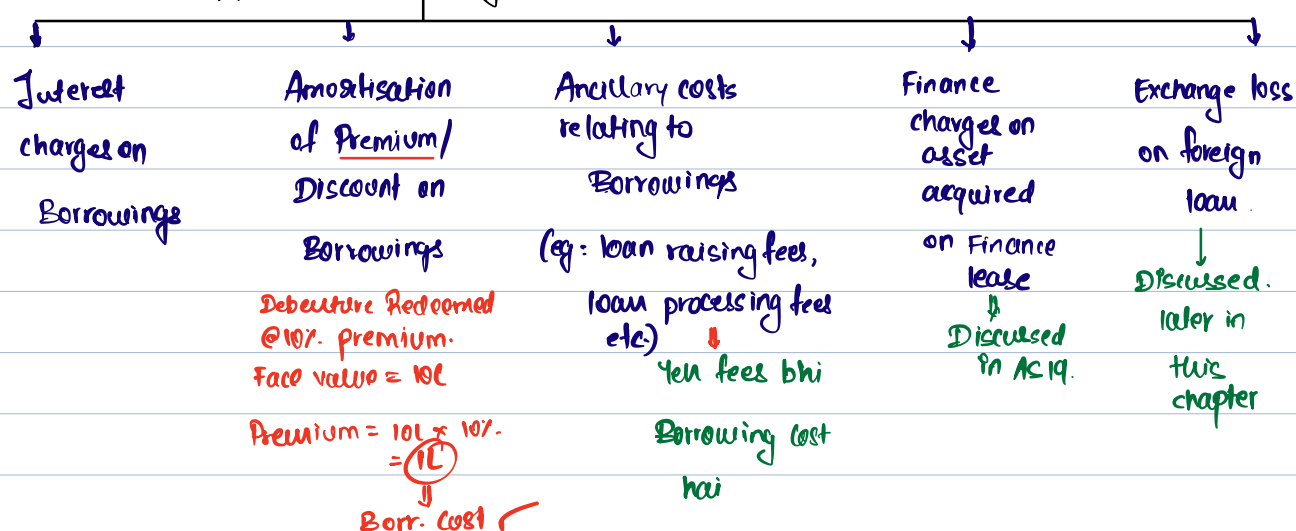 Interest
charges on
Borrowings
Amortisation
of Premium/
Discount on
Borrowings
Debenture Redeemed
@10% premium.
Face value = 10L
Premium = 10L x 10%.
= 1L
Borr. cost
Ancillary costs
relating to
Borrowings
(eg: loan raising fees,
loan processing fees
etc.)
Yeh fees bhi
Borrowing cost
hai
Finance
charges on
asset
acquired
on Finance
lease
Discussed
in AS 19.
Exchange loss
on foreign
loan.
Discussed.
later in
this
chapter